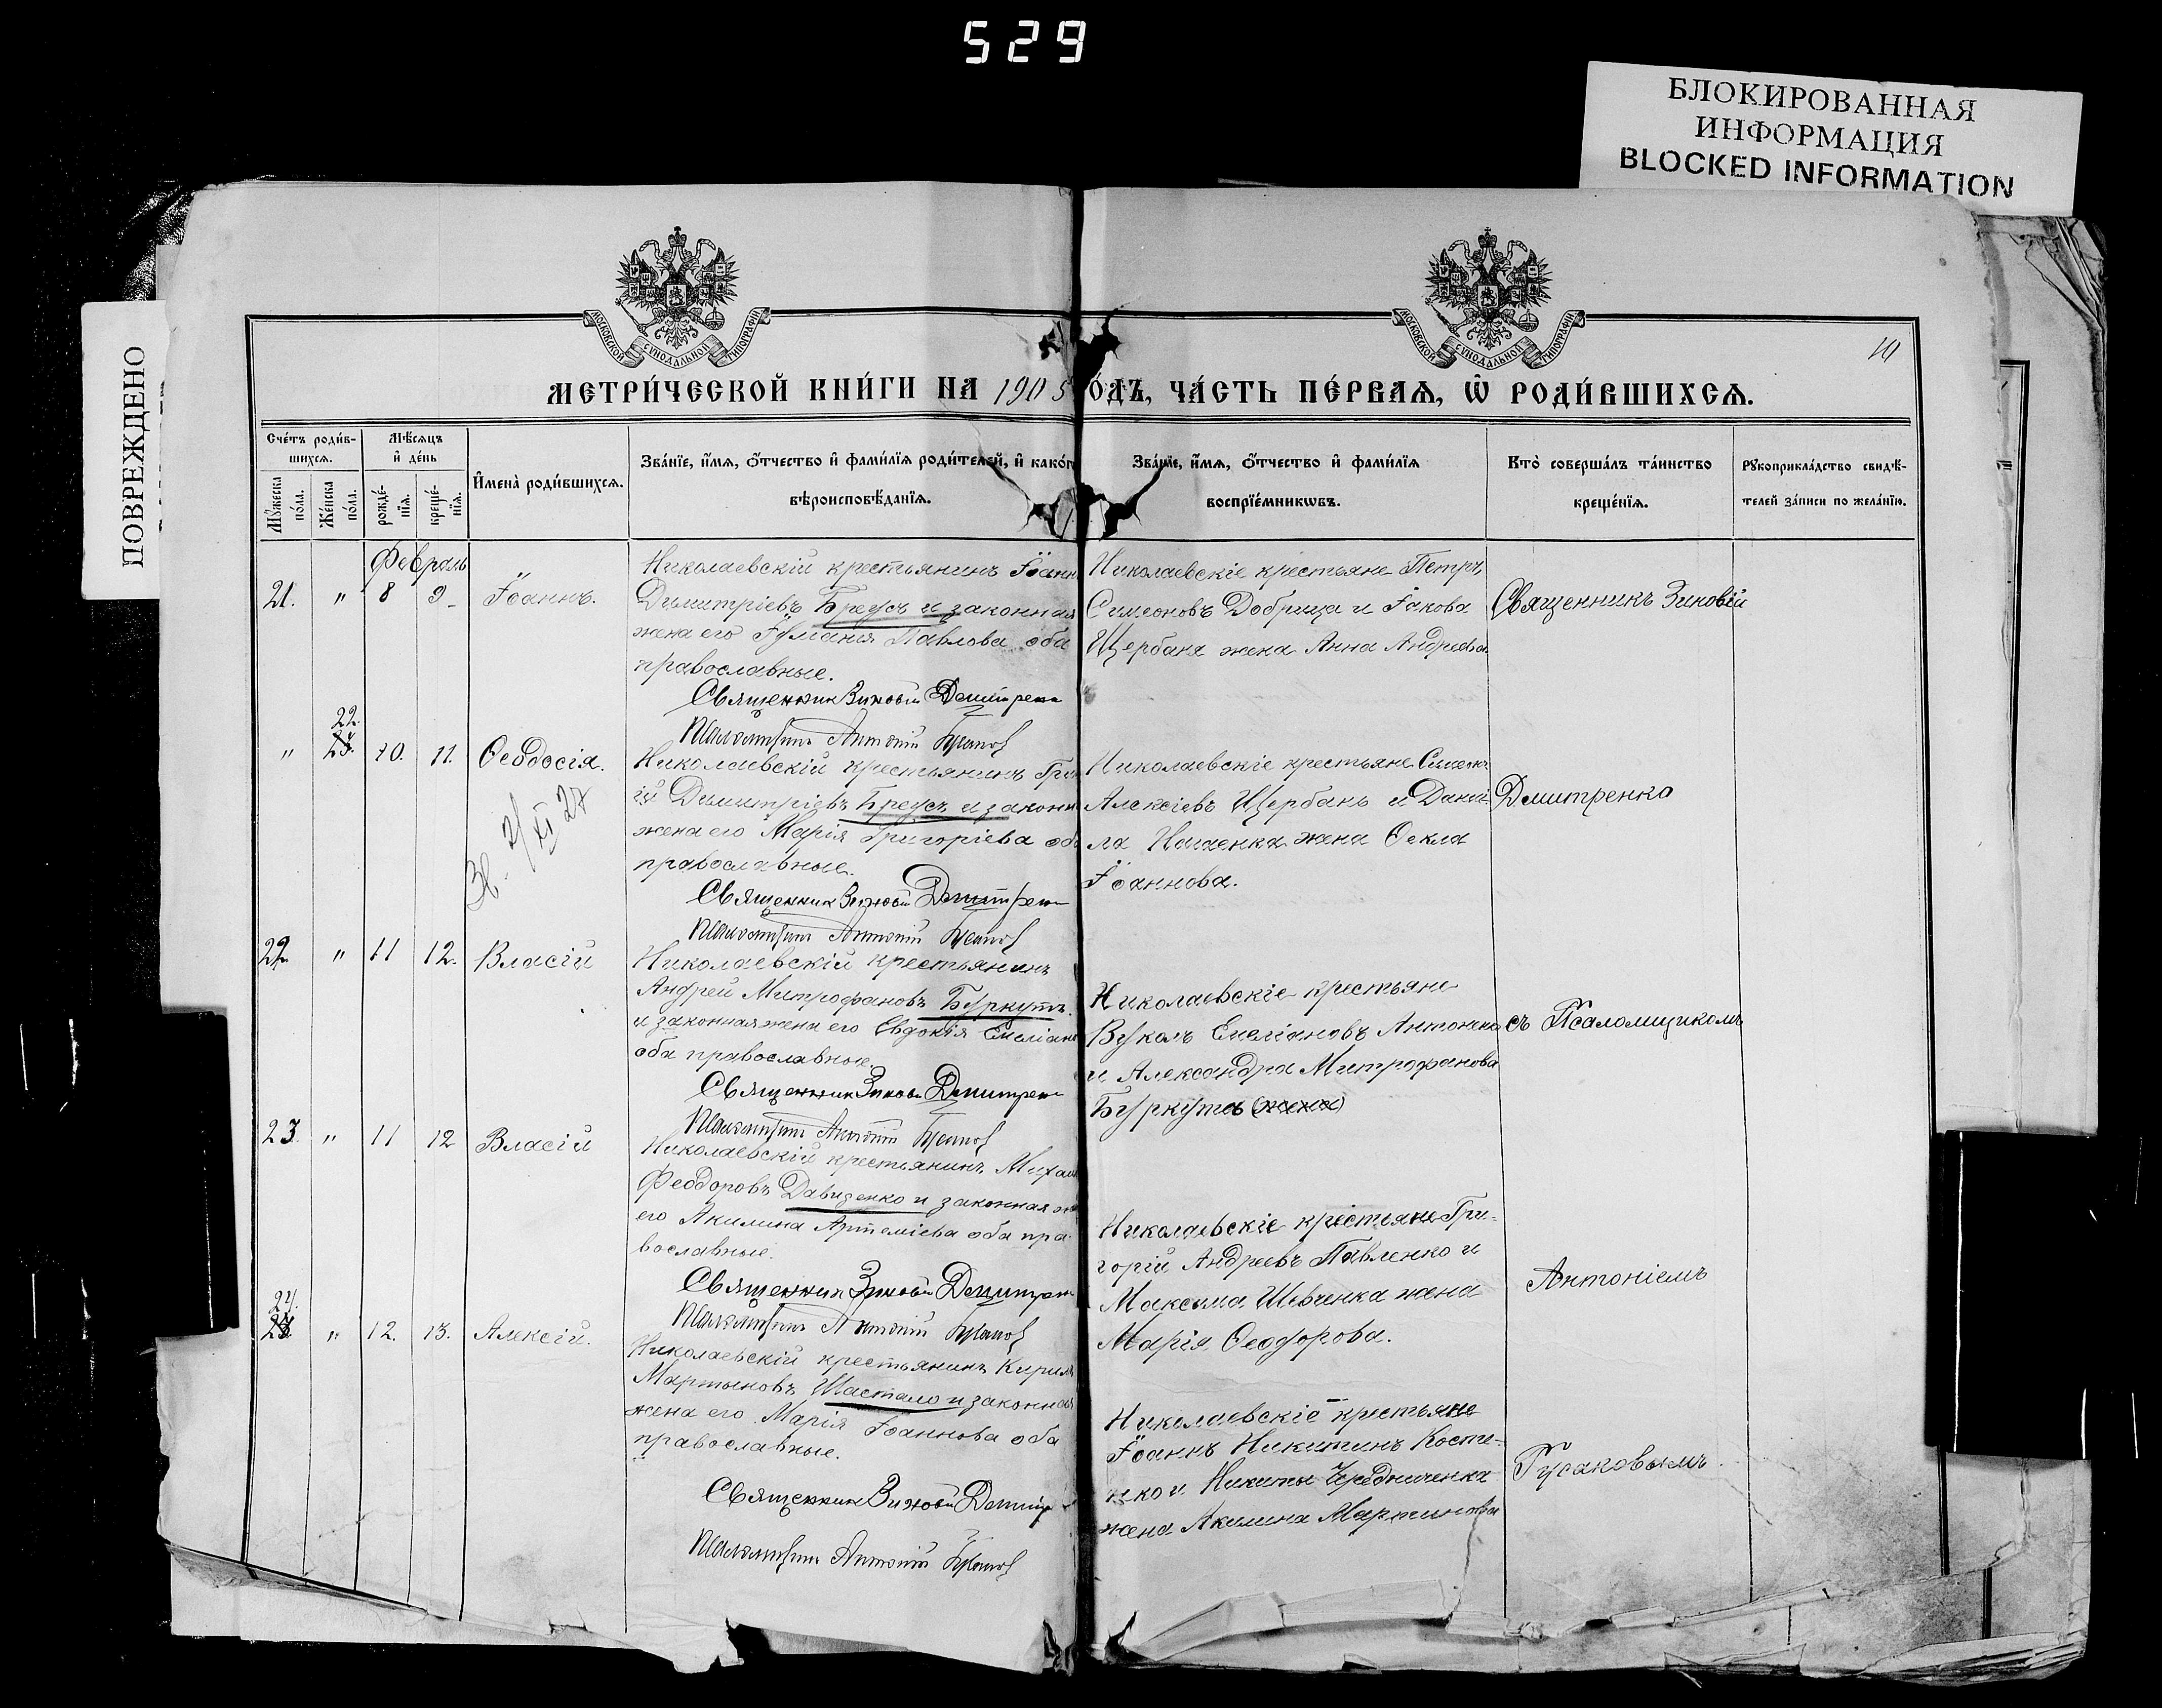 529
БЛОКИРОВАННАЯ
ИНФОРМАЦИЯ
BLOCKED INFORMATION
ПОВРЕЖДЕНО
МОСКОВСКОЙ СУНОДАЛЬНОЙ ТИПОГРАФІИ
МОСКОВСКОЙ СУНОДАЛЬНОЙ ТИПОГРАФІИ
10
МЕТРИ́ЧЕСКОЙ КНИ́ГИ НА 1905
О́ДЪ, ЧА́СТЬ ПЕ́РВАѦ, Ѡ РОДИ́ВШИХСѦ.
Сче́тъ роди́в-
шихсѧ.
Мꙋ́жеска
по́ла.
Же́нска
по́ла.
Мѣ́сѧцъ
и҆ де́нь
рожде́-
нїѧ.
креще́-
нїѧ.
И҆мена̀ роди́вшихсѧ.
Зва́нїе, и҆́мѧ, ѻ҆́тчество и҆ фами́лїѧ роди́телей, и҆ како́г
вѣроисповѣ́данїѧ.
Зва́нїе, и҆́мѧ, ѻ҆́тчество и҆ фами́лїѧ
воспрїе́мникѡвъ.
Кто̀ соверша́лъ та́инство
креще́нїѧ.
Рꙋкоприкла́дство свидѣ́-
телей за́писи по жела́нїю.
Февраль
21. " 8 9 Іоаннъ.
Николаевскій крестьянинъ Іоанн
Димитріевъ Бреусъ и законная
жена его Іуліанія Павлова оба
православные.
Священник Зиновій Дмитренко
Псаломщикъ Антоній Гусаков
Николаевскіе крестьяне Петръ
Симеоновъ Добрица и Іакова
Щербаня жена Анна Андреева
Священникъ Зиновій
" 22. 10. 11. Ѳеодосія.
27
Николаевскій крестьянинъ Гри
ій Димитріевъ Бреусъ и законн
жена его Марія Григоріева об
православные.
Священник Зиновій Дмитренко
Псаломщикъ Антоній Гусаков
Николаевскіе крестьяне Симеонъ
Алексіевъ Щербань и Дании-
ла жена Ѳекла
Іоаннова.
Дмитренко
22. " 11 12. Власій
Николаевскій крестьянинъ
Андрей Митрофановъ Буркутъ
и законная жена его Евдокія Емеліан
оба православные.
Священник Зиновій Дмитренко
Псаломщикъ Антоній Гусаков
Николаевскіе крестьяне
Вуколъ Емеліановъ Антоненко
и Александра Митрофанова
Буркута (жена)
съ Псаломщикомъ
23. " 11 12 Власій
Николаевскій крестьянинъ Михаил
Феодоровъ Давиденко и законная ж
его Акилина Артеміева оба пра-
вославные.
Священник Зиновій Дмитренко
Псаломщикъ Антоній Гусаков
Николаевскіе крестьяне Гри-
горій Андреевъ Павленко и
Максима Шевченка жена
Марія Ѳеодорова.
Антоніемъ
24. " 12. 13. Алексій.
Николаевскій крестьянинъ Кирилъ
Мартыновъ Шастало и законная
жена его Марія Іоаннова оба
православные.
Священник Зиновій Дмитр
Псаломщикъ Антоній Гусаков
Николаевскіе крестьяне
Іоаннъ Никитинъ Косте-
нко и Никиты Чередниченка
жена Акилина Мартинова
Гусаковымъ.